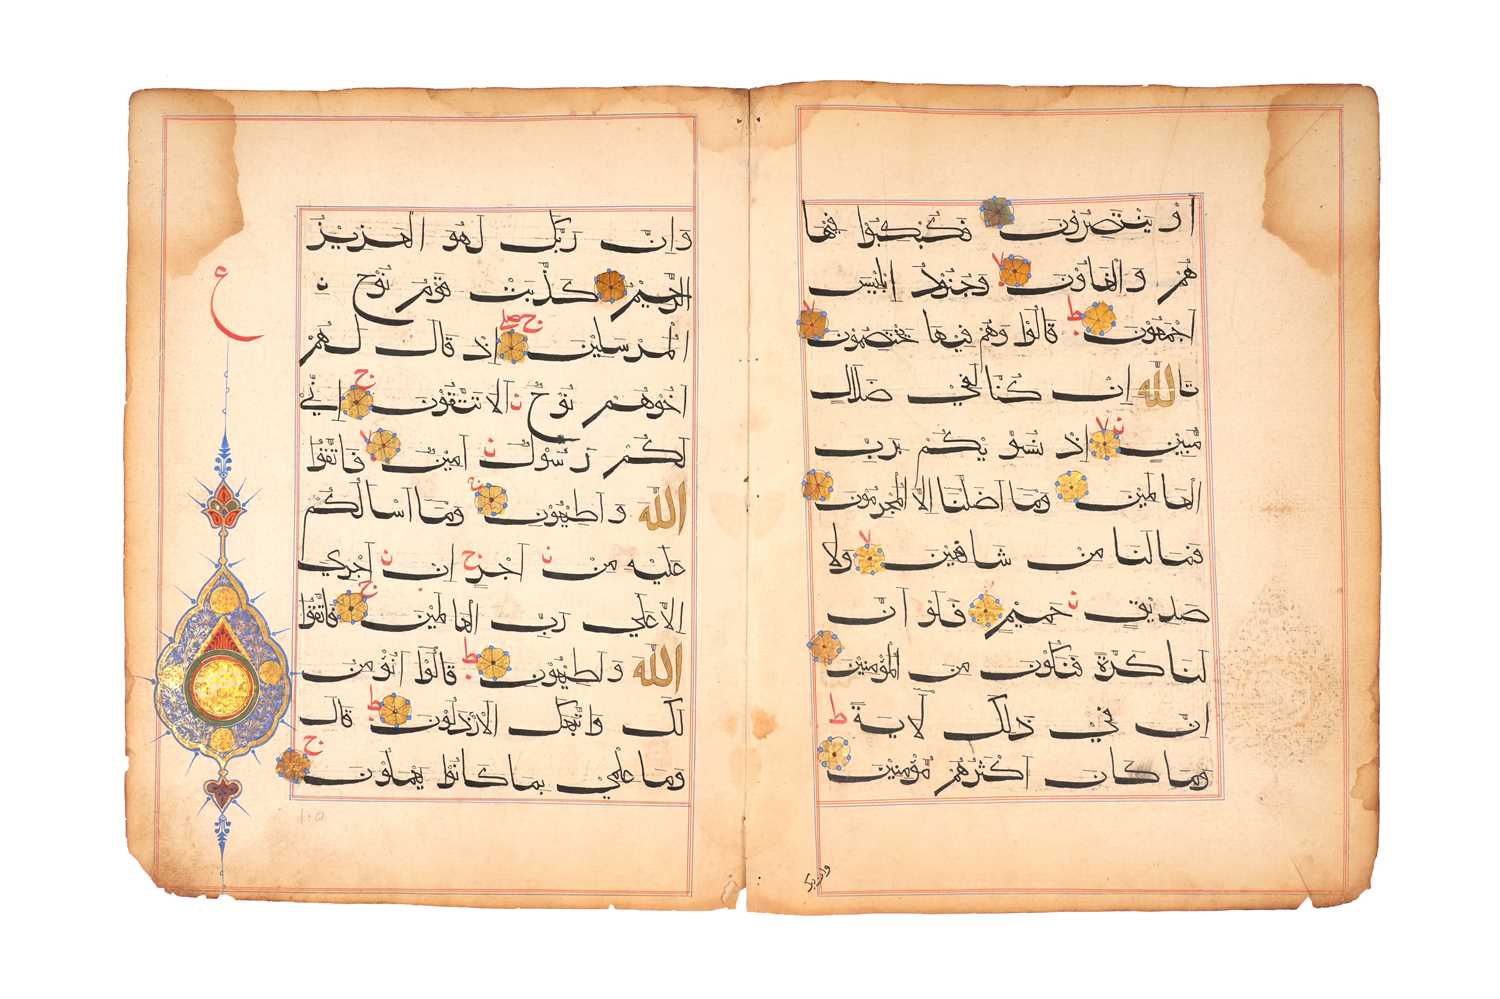 اَوْ يَنْتَصِرُونَ فَكُبْكِبُوا فِيهَا
هُمْ وَالْغَاوُنَ وَجُنُودُ اِبْلِيسَ
اَجْمَعُونَ ط قَالُوا وَهُمْ فِيهَا يَخْتَصِمُونَ لا
تَاللّٰهِ اِنْ كُنَّا لَفِي ضَلَالٍ
مُبِينٍ اِذْ نُسَوِّيكُمْ بِرَبِّ
الْعَالَمِينَ وَمَا اَضَلَّنَا اِلَّا الْمُجْرِمُونَ
فَمَا لَنَا مِنْ شَافِعِينَ لا وَلَا
صَدِيقٍ حَمِيمٍ فَلَوْ اَنَّ
لَنَا كَرَّةً فَنَكُونَ مِنَ الْمُؤْمِنِينَ
اِنَّ فِي ذٰلِكَ لَاٰيَةً ط
وَمَا كَانَ اَكْثَرُهُمْ مُؤْمِنِينَ
وان ربك
وَاِنَّ رَبَّكَ لَهُوَ الْعَزِيزُ
الرَّحِيمُ كَذَّبَتْ قَوْمُ نُوحٍ ن
الْمُرْسَلِينَ اِذْ قَالَ لَهُمْ
اَخُوهُمْ نُوحٌ اَلَا تَتَّقُونَ ج اِنِّي
لَكُمْ رَسُولٌ اَمِينٌ لا فَاتَّقُوا
اللّٰهَ وَاَطِيعُونِ وَمَا اَسْاَلُكُمْ
عَلَيْهِ مِنْ اَجْرٍ ج اِنْ اَجْرِيَ
اِلَّا عَلٰى رَبِّ الْعَالَمِينَ ج فَاتَّقُوا
اللّٰهَ وَاَطِيعُونِ ط قَالُوا اَنُؤْمِنُ
لَكَ وَاتَّبَعَكَ الْاَرْذَلُونَ ط قَالَ
وَمَا عِلْمِي بِمَا كَانُوا يَعْمَلُونَ ج
ع
١٠٥